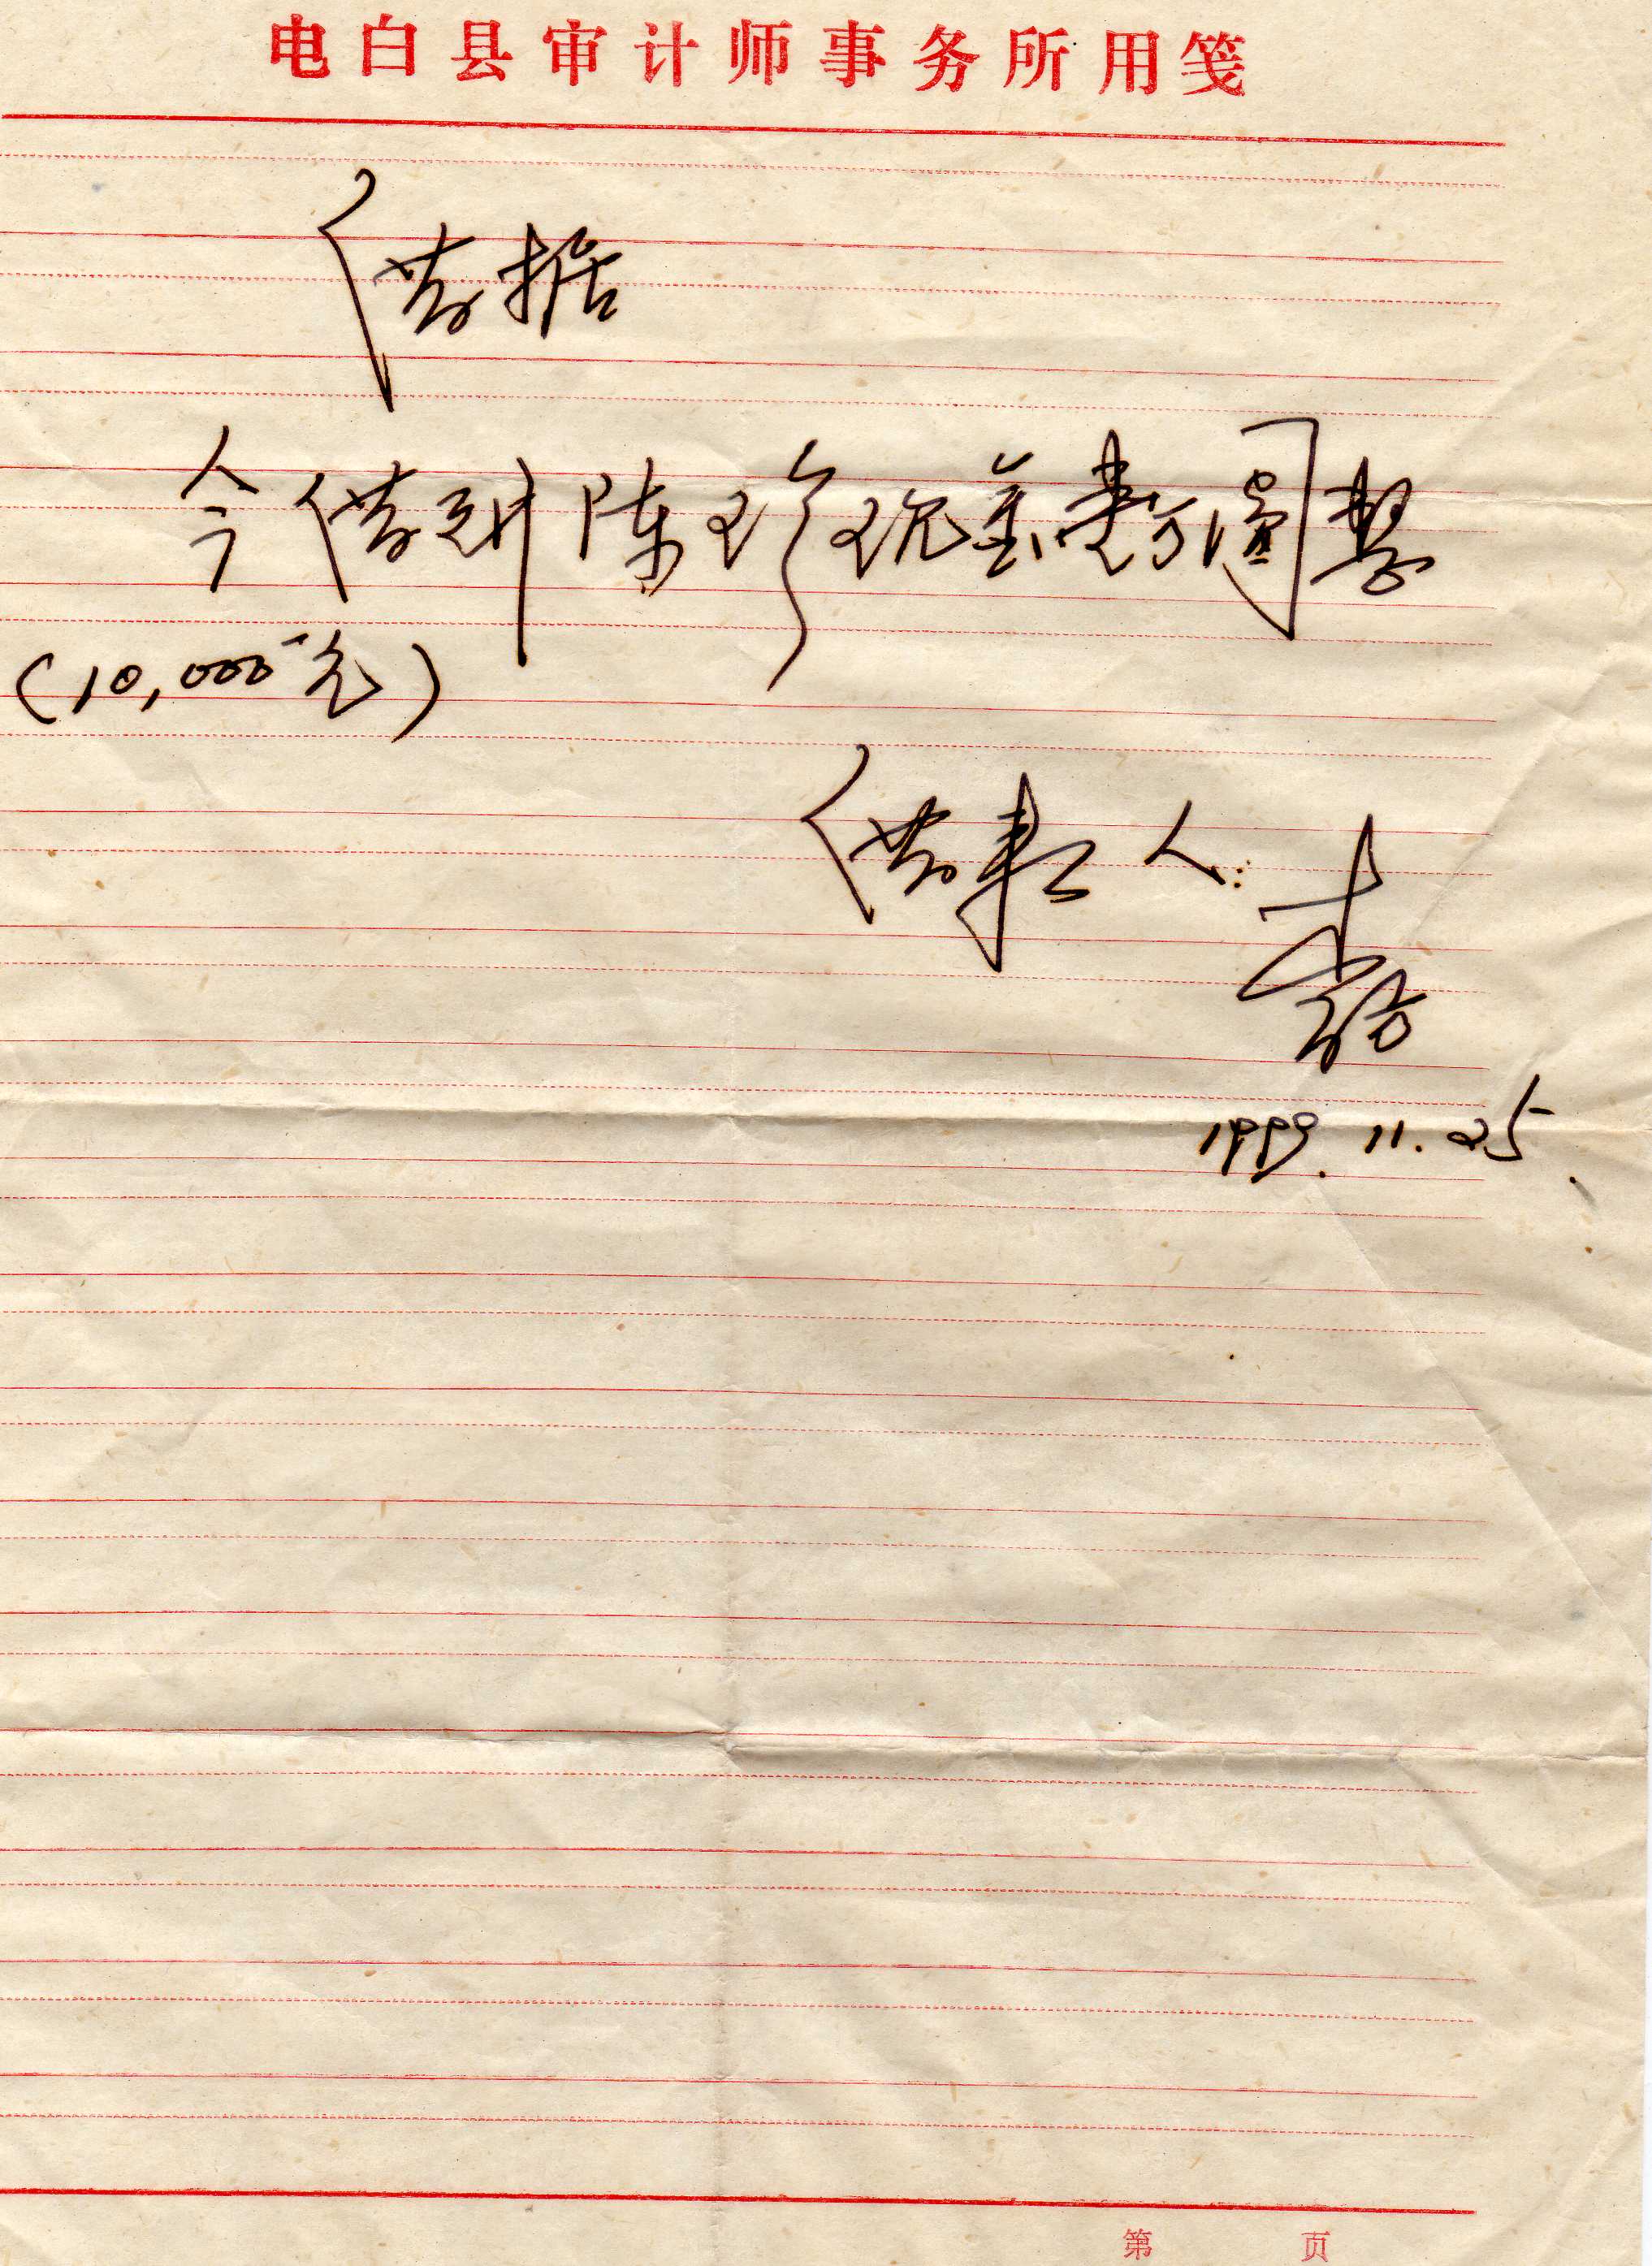 电白县审计师事务所用笺
借据
今借到陈珍现金壹万圆整
(10,000元)
借款人:
1999.11.25
第 页